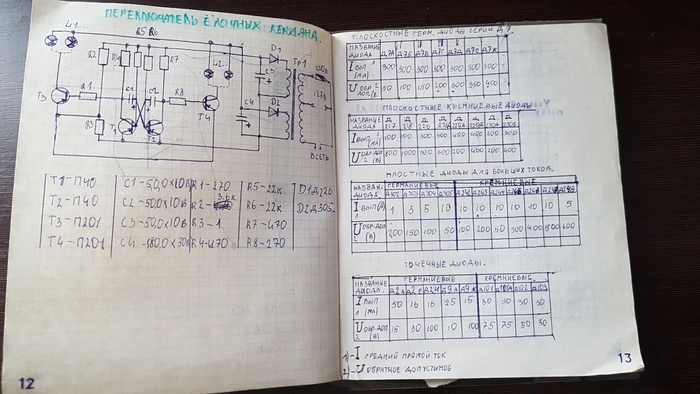 ПЕРЕКЛЮЧАТЕЛЬ ЁЛОЧНЫХ
Л1... R5 R6 Д1 Тр1
R2 R4 R7 Л2...
220В
С3
127В
Т3 R1 С1 С2 R8 С4 Д2
Т4
R3 Т1 Т2
В СЕТЬ
Т1-П40 С1-50,0×10В R1-270 R5-22к Д1Д226
Т2-П40 С2-50,0×10В R2- R6-22к Д2Д305
Т3-П201 С3-50,0×10В R3-1 R7-470
Т4-П201 С4-180,0×30В R4-470 R8-270
12
ПЛОСКОСТНЫЕ ГЕРМ. ДИОДЫ СЕРИИ Д7.
НАЗВАНИЕ ДИОДА Д7А Д7Б Д7В Д7Г Д7Д Д7Е Д7Ж
I ВЫП. 1 (МА) 300 300 300 300 300 300 300
U ОБР. ДОП. 2 (В) 50 100 150 200 300 350 400
ПЛОСКОСТНЫЕ КРЕМНИЕВЫЕ ДИОДЫ
НАЗВАНИЕ ДИОДА Д 217 Д 218 Д 226 Д Д Д Д Д
I ВЫП. 1 (МА) 100 100 300 300 400 400 300 300
U ОБР. ДОП 2 (В) 800 1000 300 200 400 200 400
ПЛОСТНЫЕ ДИОДЫ ДЛЯ БОЛЬШИХ ТОКОВ.
НАЗВАН. ДИОДА. ГЕРМАНИЕВЫЕ КРЕМНИЕВЫЕ
Д302 Д303 Д304 Д305 Д242 Д243 Д245 Д246 Д248
I ВЫП(А) 1 1 3 5 10 10 10 10 10 10 5
U ОБР.ДОП 2 (В) 200 150 100 50 100 200 50 300 400 500 400
ТОЧЕЧНЫЕ ДИОДЫ.
НАЗВАНИЕ ДИОДА. ГЕРМАНИЕВЫЕ КРЕМНИЕВЫЕ.
Д2 Д2 Д2И Д9 Д9 Д9 Ж Д101 Д101А Д102 Д103
I ВЫП 1 (МА) 50 16 16 25 15 30 30 30 30
U ОБР.ДОП 2 (В) 15 30 100 10 100 75 75 50 30
1)-I СРЕДНИЙ ПРЯМОЙ ТОК
2)-U ОБРАТНОЕ ДОПУСТИМОЕ
13